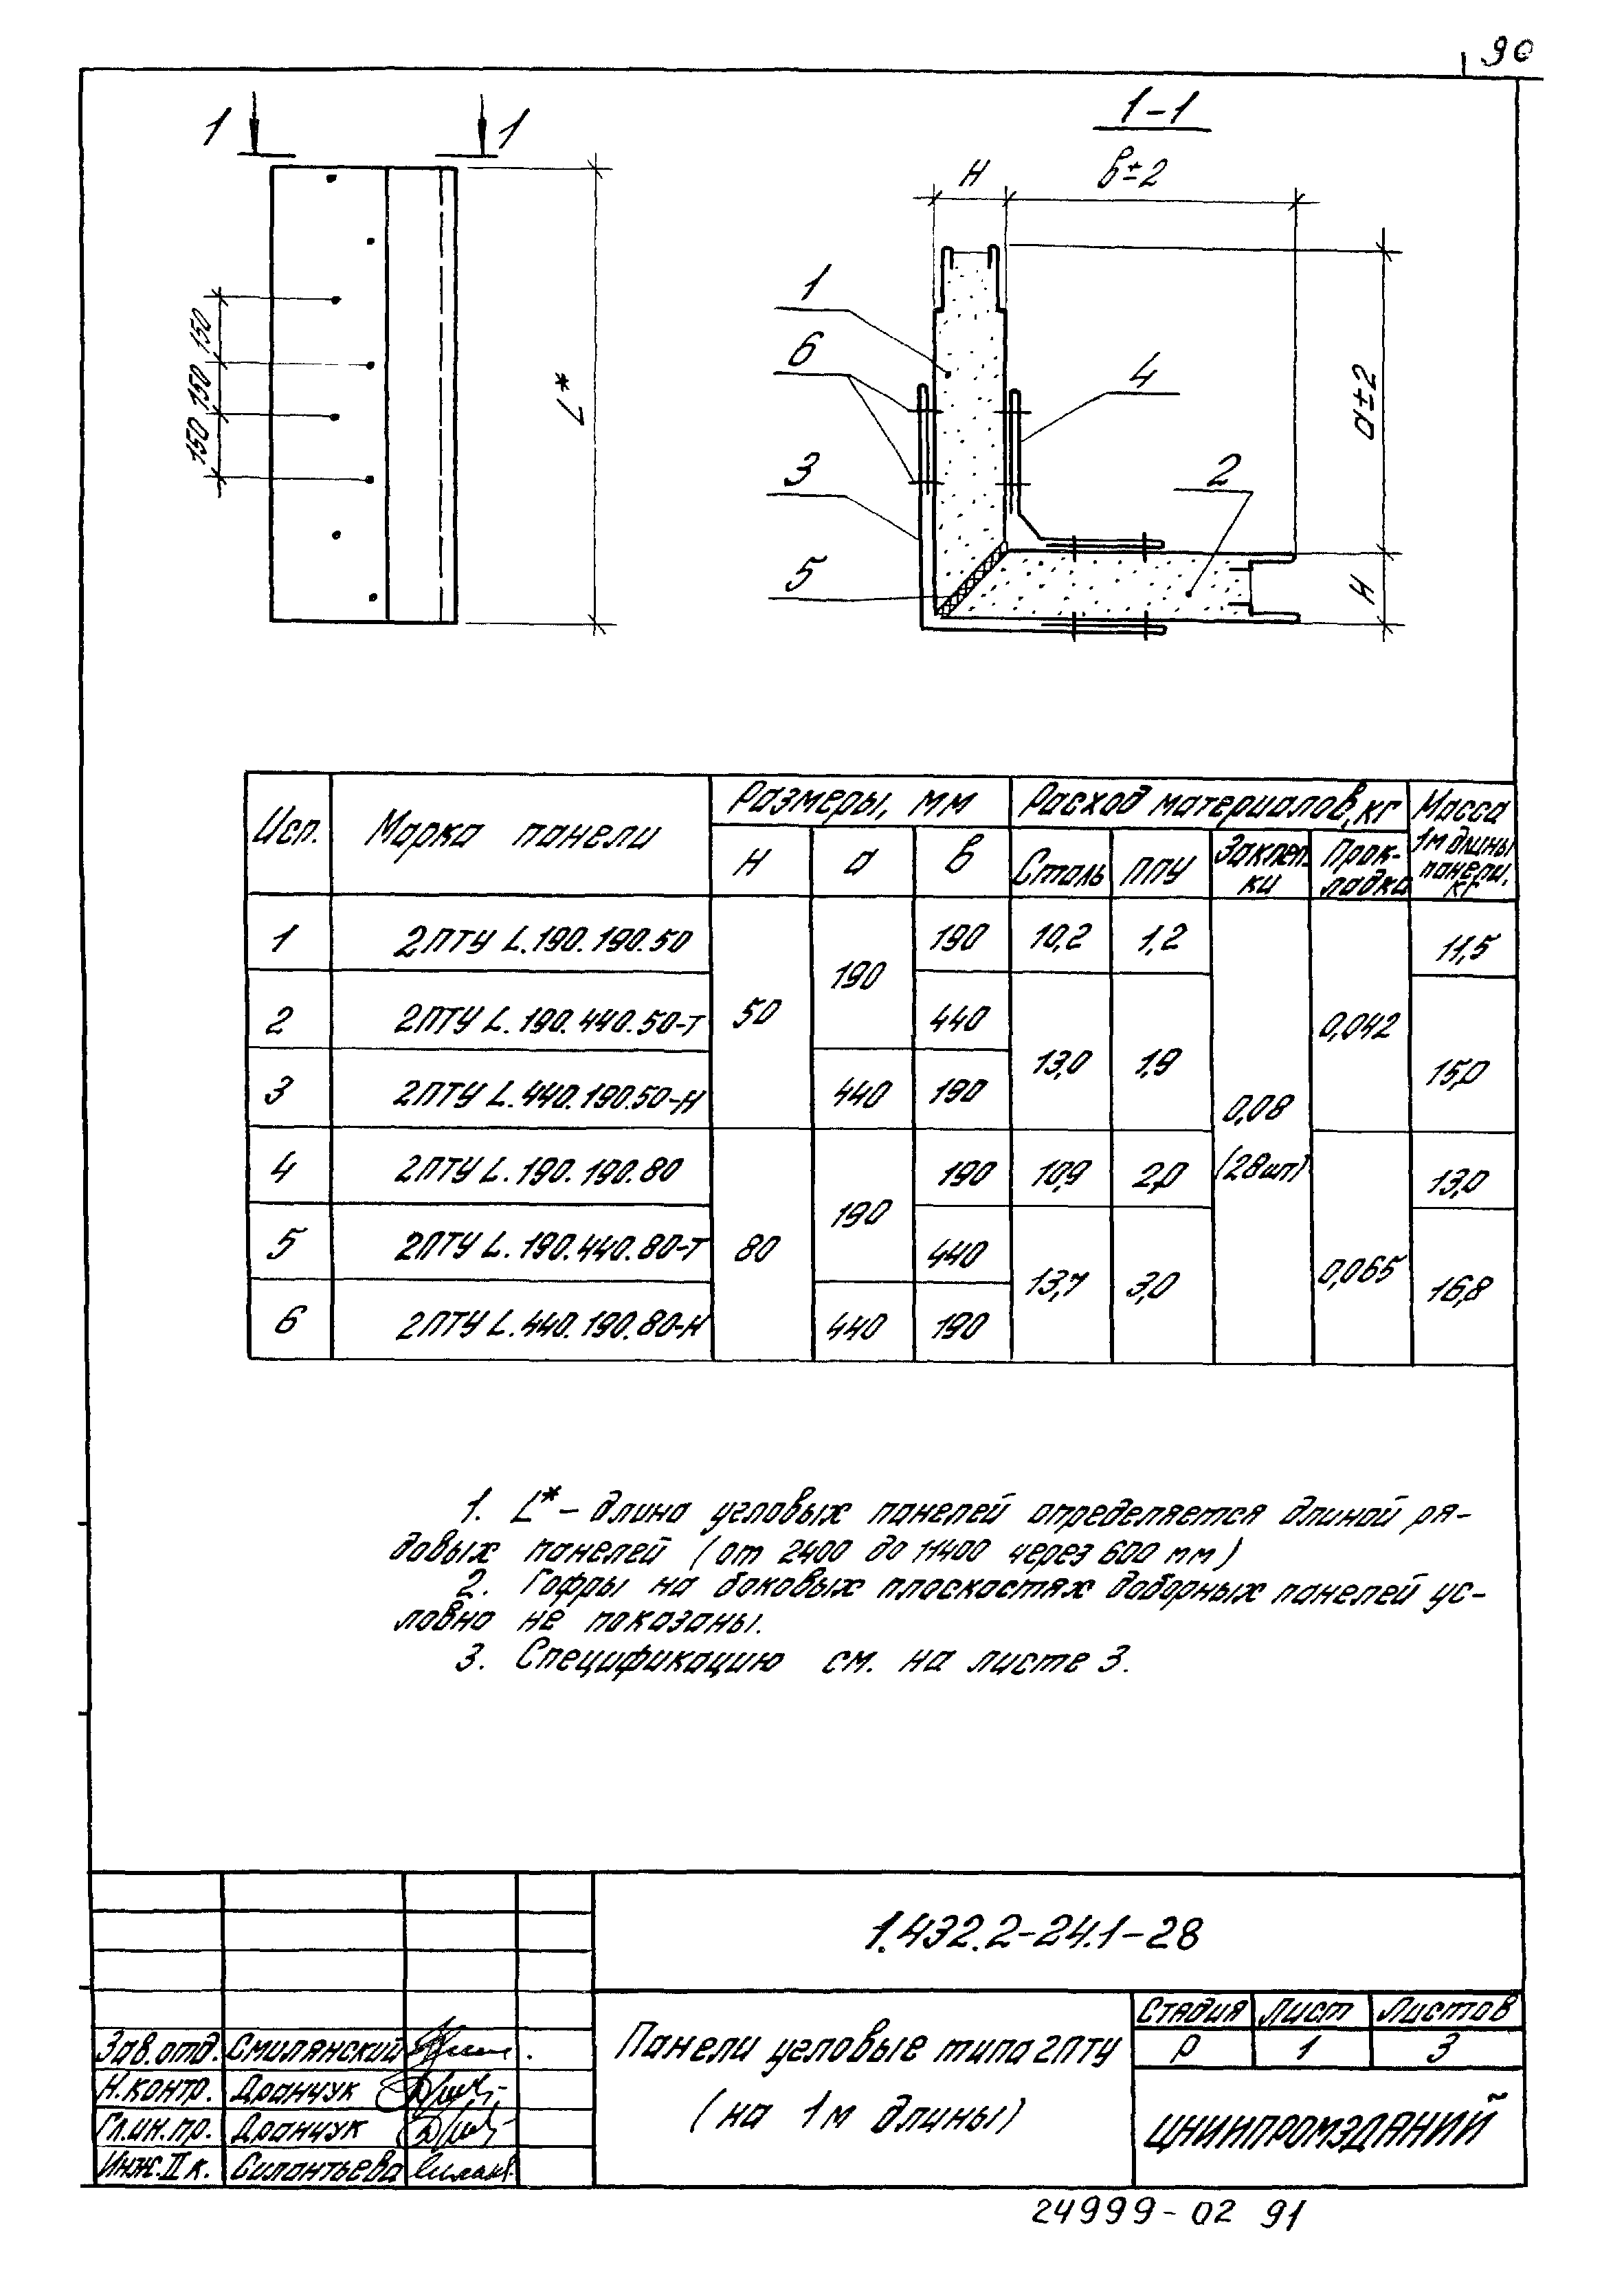 90
1 1
150 150 150
L*
1-1
H в±2
1
6
3
5
4
2
а±2
H
Исп. Марка панели Размеры, мм Расход материалов, кг Масса 1м длины панели, кг
H а в Сталь ППУ Заклеп-ки Прок-ладка
1 2ПТУ L.190.190.50 50 190 190 10,2 1,2 0,08 (28шт) 0,042 11,5
2 2ПТУ L.190.440.50-Т 440 13,0 1,9 15,0
3 2ПТУ L.440.190.50-Н 440 190
4 2ПТУ L.190.190.80 80 190 190 10,9 2,0 0,065 13,0
5 2ПТУ L.190.440.80-Т 440 13,7 3,0 16,8
6 2ПТУ L.440.190.80-Н 440 190
1. L* - длина угловых панелей определяется длиной ря-
довых панелей (от 2400 до 11400 через 600 мм)
2. Гофры на боковых плоскостях доборных панелей ус-
ловно не показаны.
3. Спецификацию см. на листе 3.
1.432.2-24.1-28
Панели угловые типа 2ПТУ
(на 1м длины)
Стадия Лист Листов
Р 1 3
ЦНИИПРОМЗДАНИЙ
Зав.отд. Смилянский
Н.контр. Дранчук
Гл.ин.пр. Дранчук
Инж.II к. Силантьева
24999-02 91